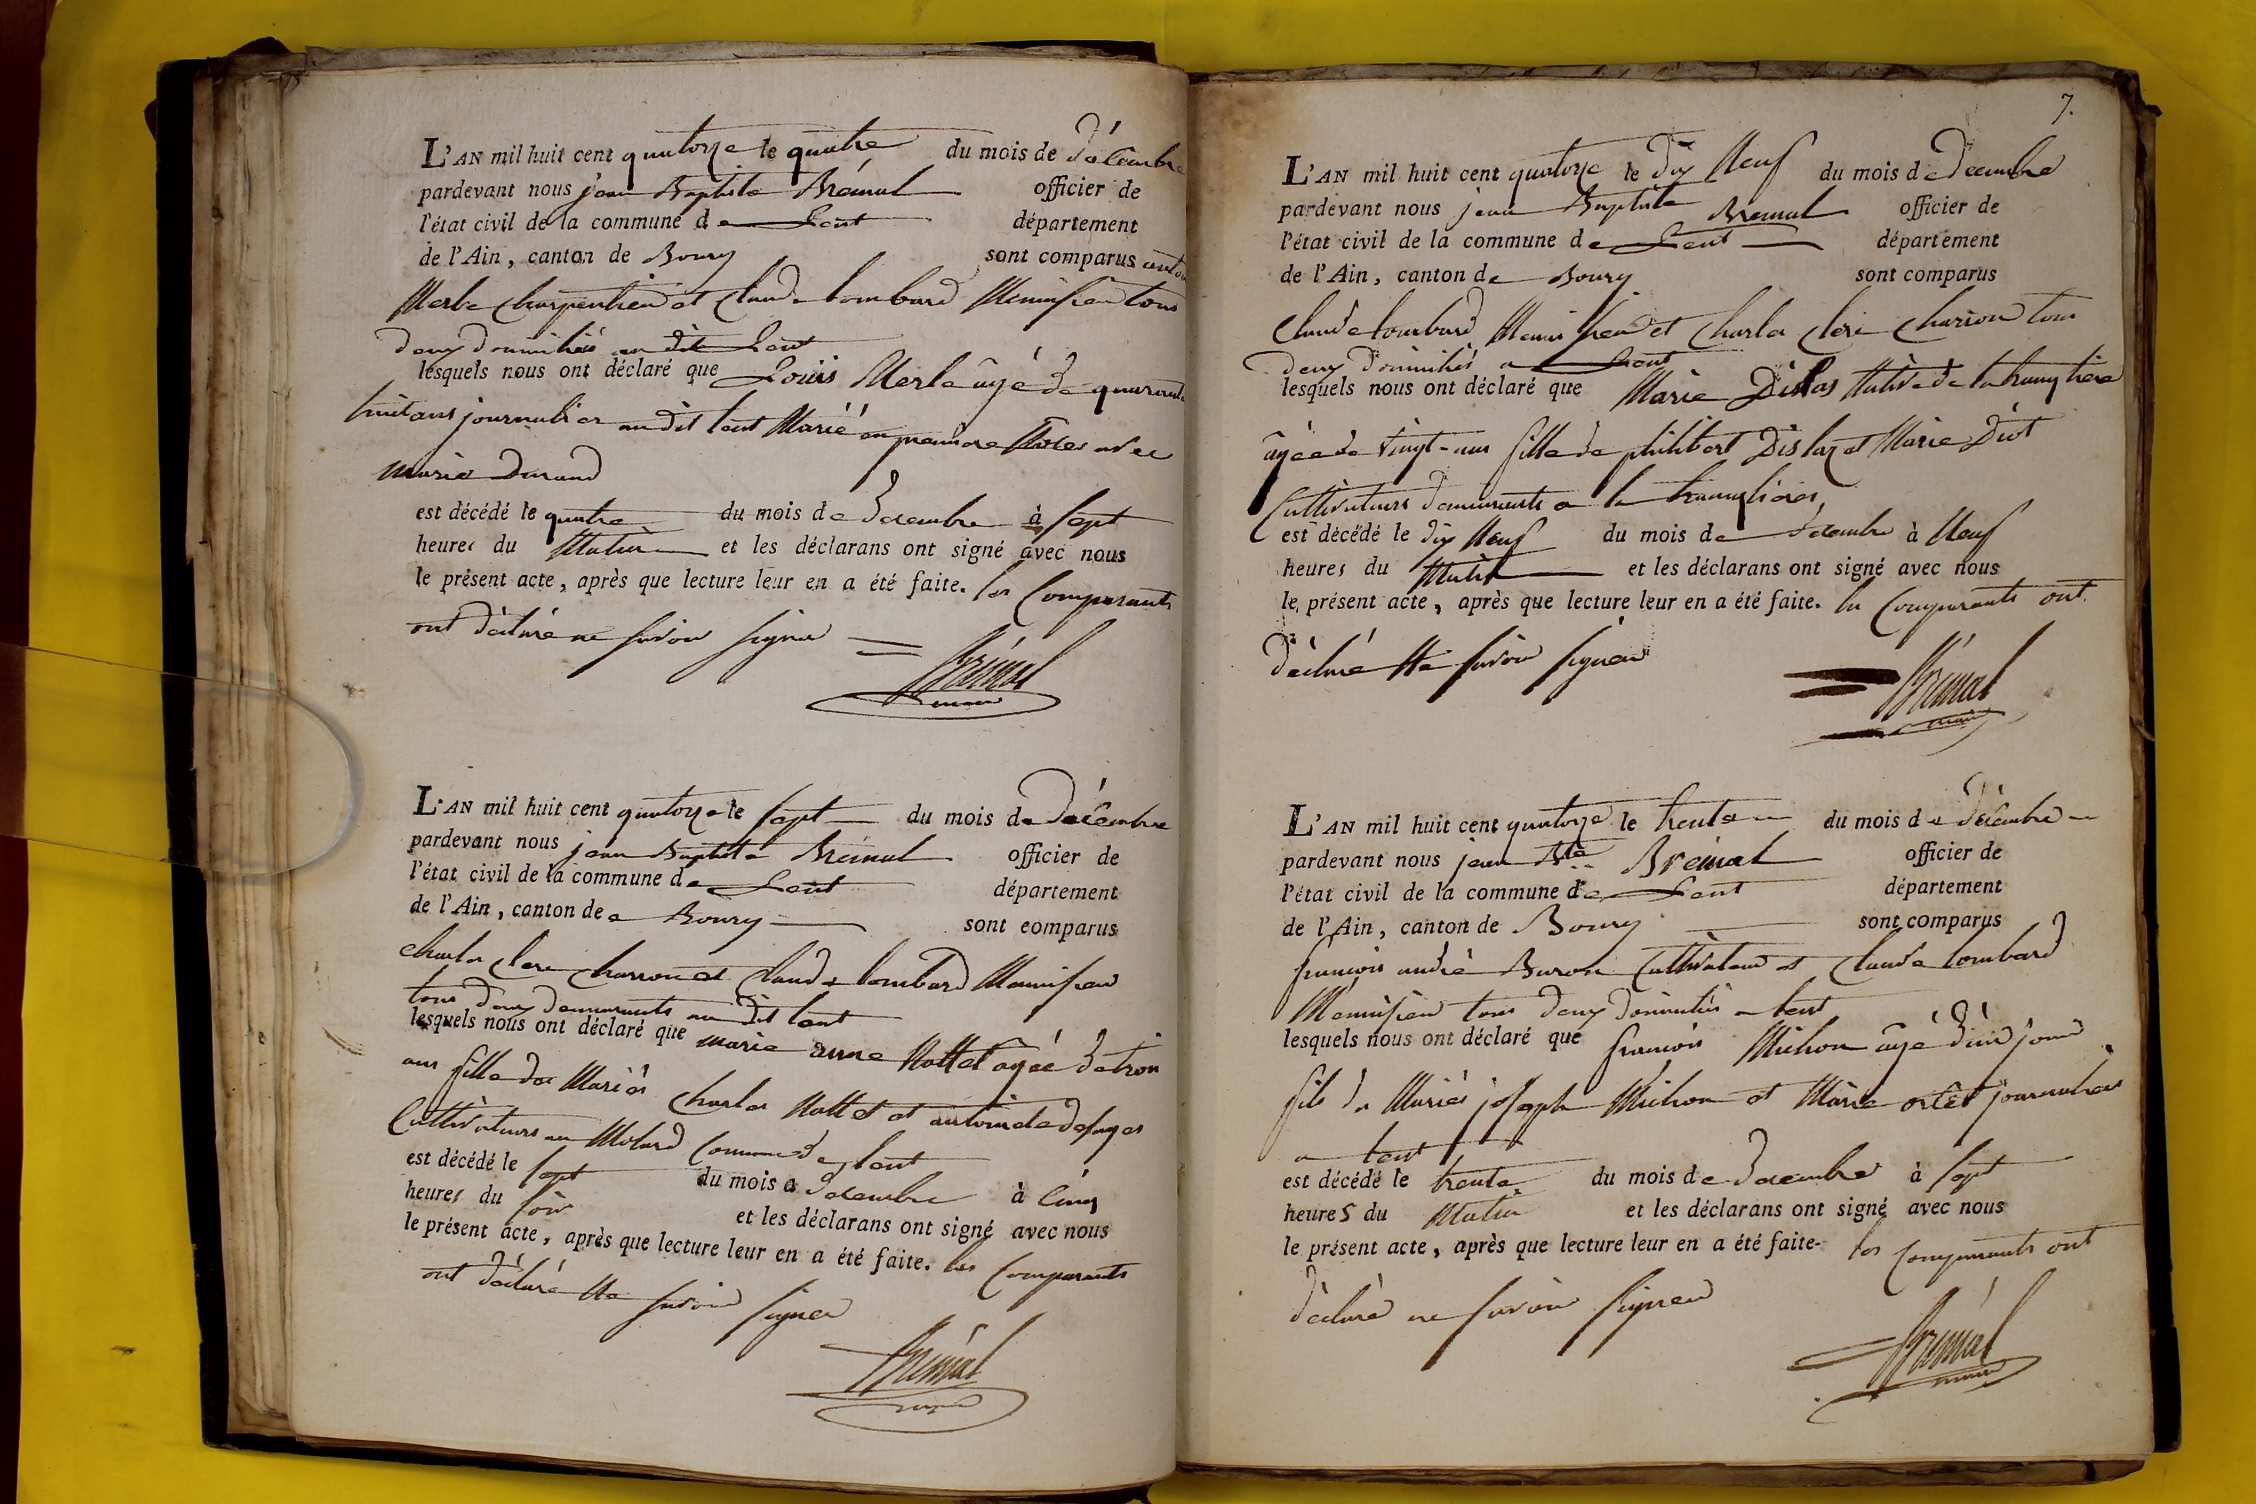 L'AN mil huit cent quatorze le quatre du mois de décembre
pardevant nous jean Baptiste Brémal officier de
l'état civil de la commune de Lent département
de l'Ain, canton de Bourg sont comparus antoi
Merle charpentier et Claude Lombard Menuisier tous
deux domiciliés au dit Lent
lesquels nous ont déclaré que Louis Merle âgé de quarante
huit ans journalier au dit lent Marié en première Noces avec
marie Durand
est décédé le quatre du mois de décembre à sept
heures du Matin et les déclarans ont signé avec nous
le présent acte, après que lecture leur en a été faite. les Comparants
ont déclaré ne savoir signer
Brémal
maire
L'AN mil huit cent quatorze le sept du mois de décembre
pardevant nous jean Baptiste Brémal officier de
l'état civil de la commune de Lent département
de l'Ain, canton de Bourg sont comparus
charles Clere charron et Claude Lombard Menuisier
tous deux demeurants au dit Lent
lesquels nous ont déclaré que marie anne Nallet âgée de trois
ans fille des Mariés Charles Nallet et antoinette
Cultivateurs au Molard Commune de Lent
est décédé le sept du mois de décembre à cinq
heures du soir et les déclarans ont signé avec nous
le présent acte, après que lecture leur en a été faite. les Comparants
ont déclaré Ne savoir signer
Brémal
maire
7.
L'AN mil huit cent quatorze le dix Neuf du mois de décembre
pardevant nous jean Baptiste Bremal officier de
l'état civil de la commune de Lent département
de l'Ain, canton de Bourg sont comparus
Claude Lombard Menuisier et Charles Clere Charron tous
deux domiciliés a Lent
lesquels nous ont déclaré que Marie Dislas Native de la tranclière
âgée de vingt-ans fille de philibert Dislaz et Marie Diot
Cultivateurs demeurants a la tranclière
est décédé le dix Neuf du mois de décembre à Neuf
heures du Matin et les déclarans ont signé avec nous
le présent acte, après que lecture leur en a été faite. les Comparants ont
déclaré Ne savoir signer
Brémal
maire
L'AN mil huit cent quatorze le trente du mois de décembre
pardevant nous jean Bte Brémal officier de
l'état civil de la commune de Lent département
de l'Ain, canton de Bourg sont comparus
françois andré Buron Cultivateur et Claude Lombard
Menuisier tous deux domiciliés a Lent
lesquels nous ont déclaré que françois Michon âgé d'un jour
fils des Mariés joseph Michon et Marie journaliers
a Lent
est décédé le trente du mois de décembre à sept
heures du Matin et les déclarans ont signé avec nous
le présent acte, après que lecture leur en a été faite- les Comparants ont
déclaré ne savoir signer
Brémal
maire